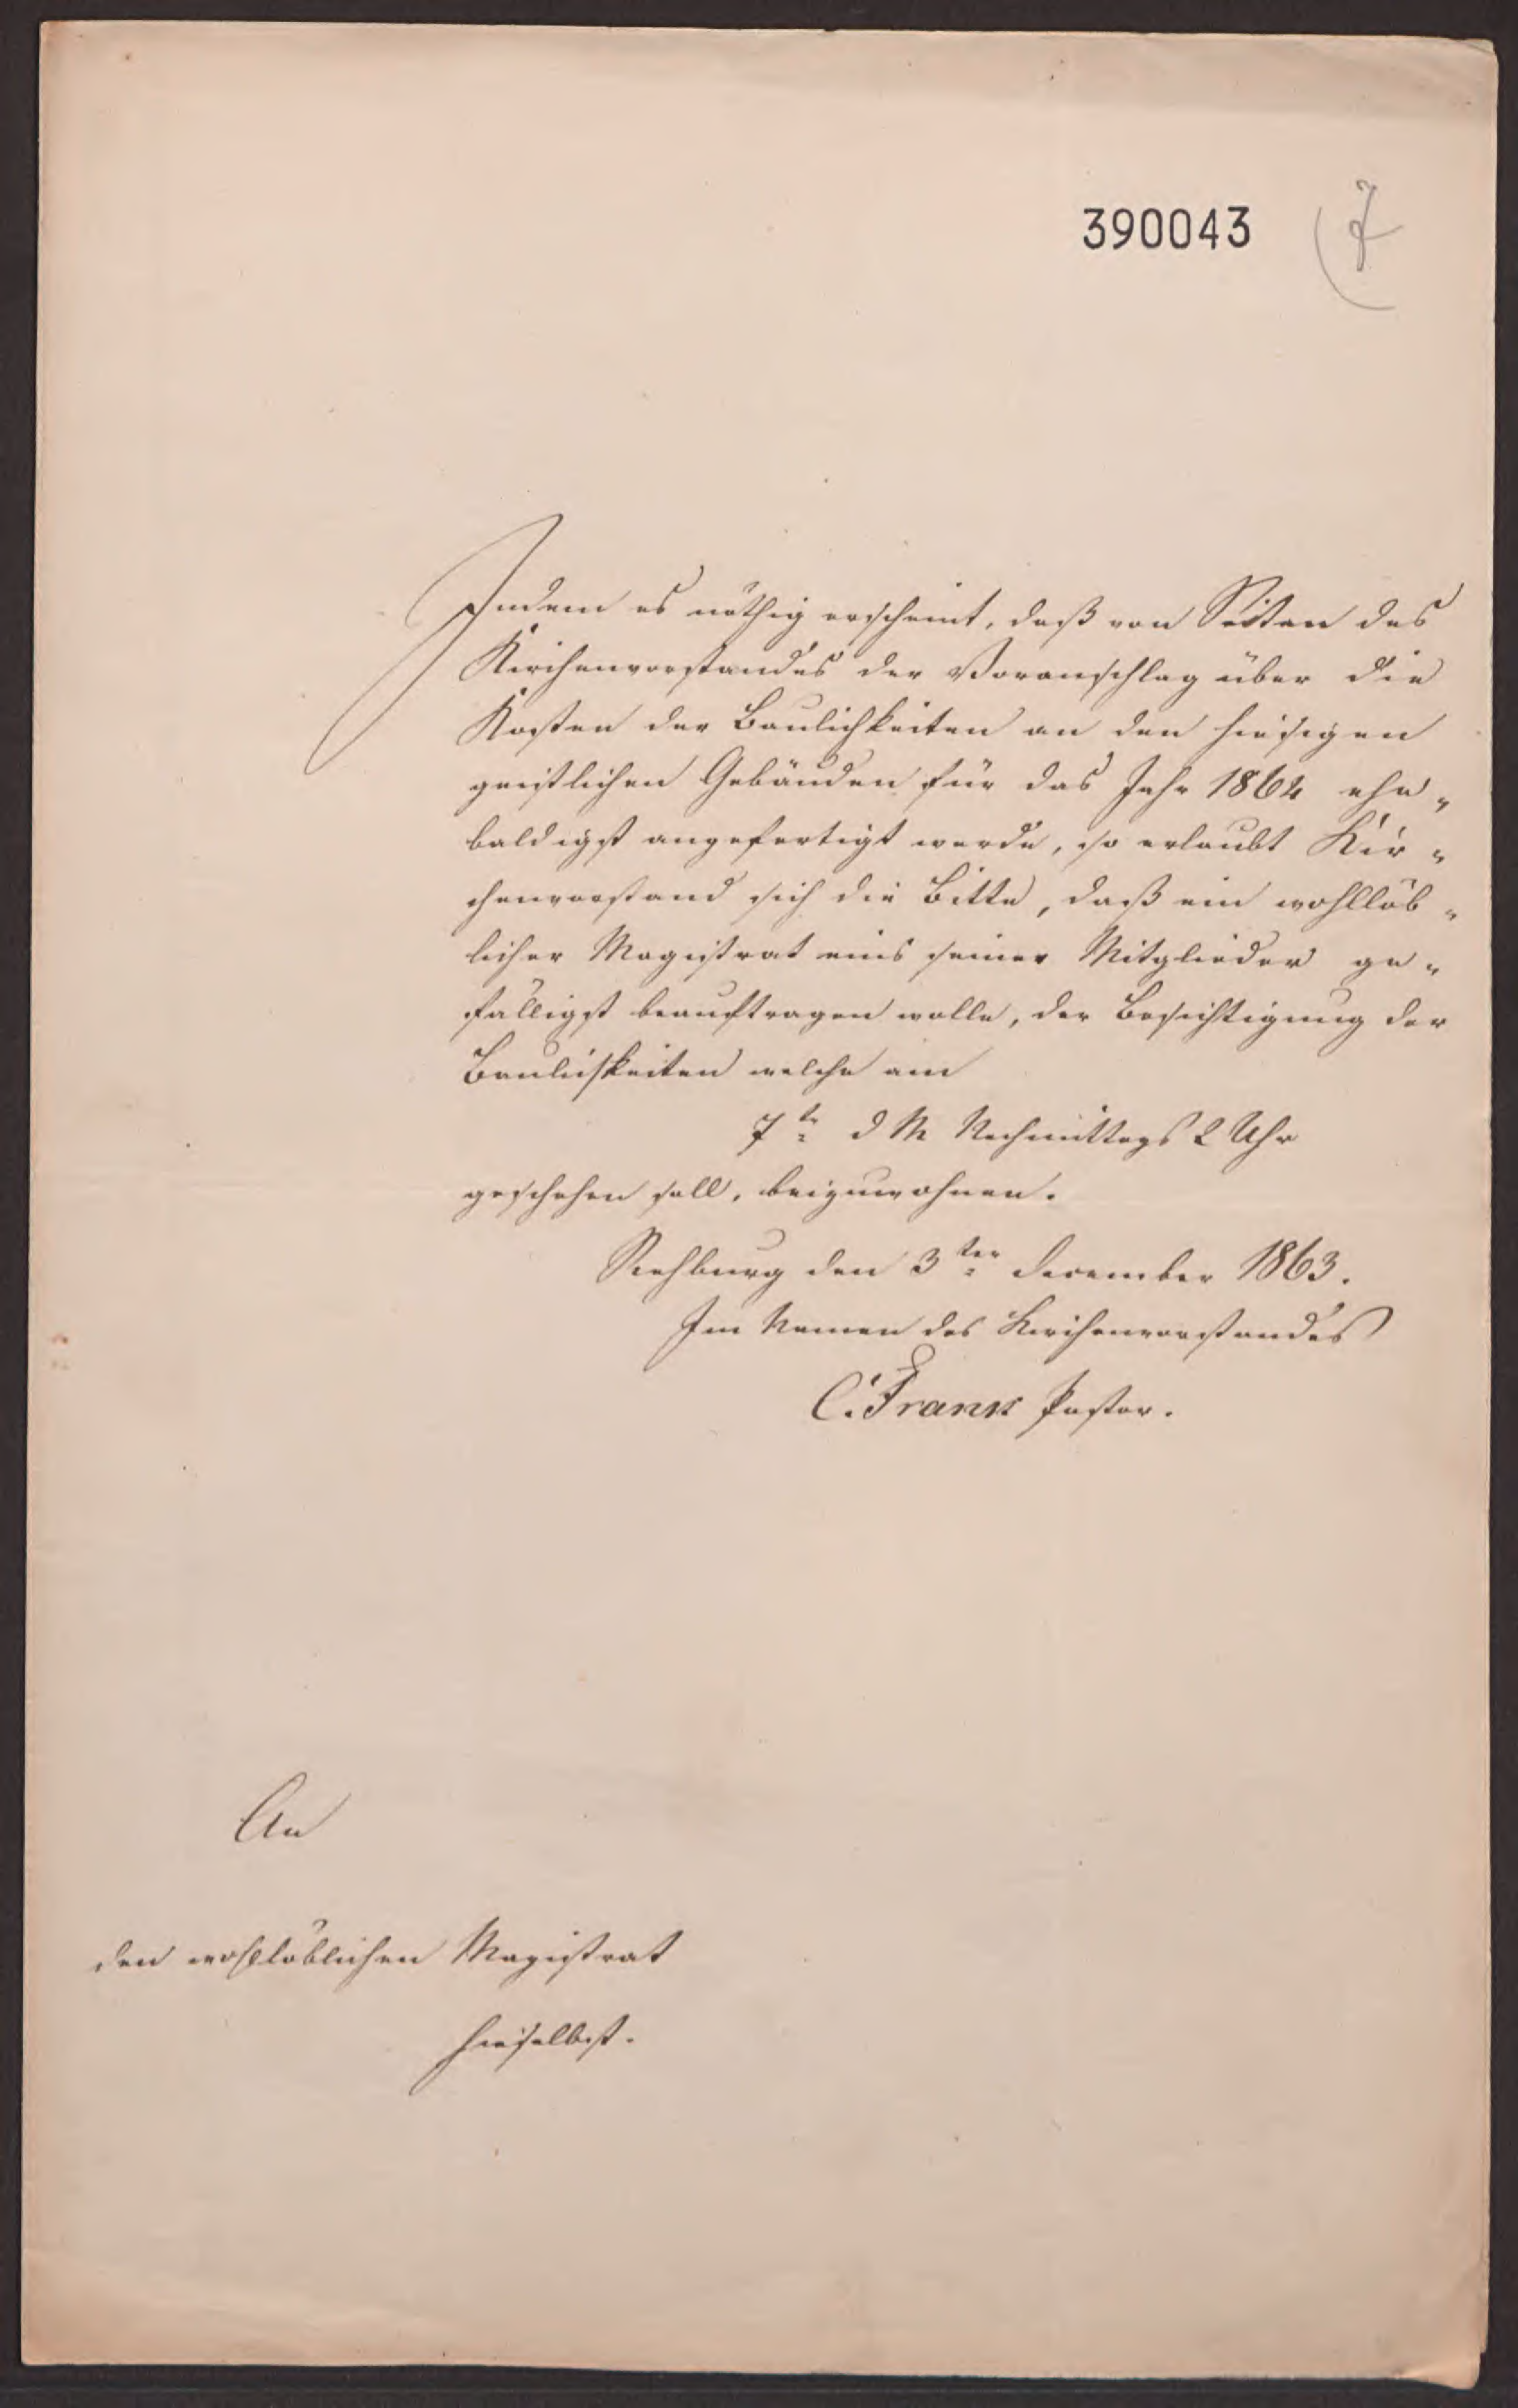 390043 7
Indem es nöthig erscheint, daß von Seiten des
Kirchenvorstandes der Voranschlag über die
Kosten der Baulichkeiten an den hiesigen
geistlichen Gebäuden für das Jahr 1864 ehe„
baldigst angefertigt werde, so erlaubt Kir„
chenvorstand sich die Bitte, daß ein wohllöb„
licher Magistrat eins seiner Mitglieder ge„
fälligst beauftragen wolle, der Besichtigung der
Baulichkeiten welche am
7te d M Nachmittags 2 Uhr
geschehen soll, beizuwohnen.
Rehburg den 3ter December 1863.
Im Namen des Kirchenvorstandes
C. Frank Pastor.
An
den wohllöblichen Magistrat
hieselbst.